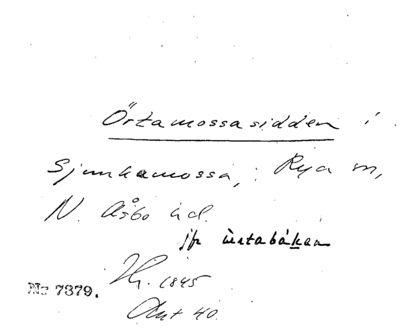 Örtamossasidden i
Sjunkamossa, Rya sn,
N. Åsbo hd.
jfr örtabáken
No 7379.
1845
Ant 40.